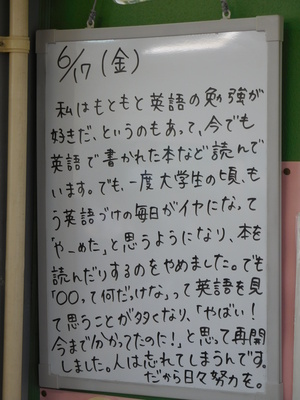 6/17(金)
私はもともと英語の勉強が
好きだ、というのもあって、今でも
英語で書かれた本など読んで
います。でも、一度大学生の頃、も
う英語づけの毎日がイヤになって
「や〜めた」と思うようになり、本を
読んだりするのをやめました。でも
「〇〇って何だっけな」って英語を見
て思うことが多くなり、「やばい!
今まで分かってたのに!」と思って再開
しました。人は忘れてしまうんです。
だから日々努力を。